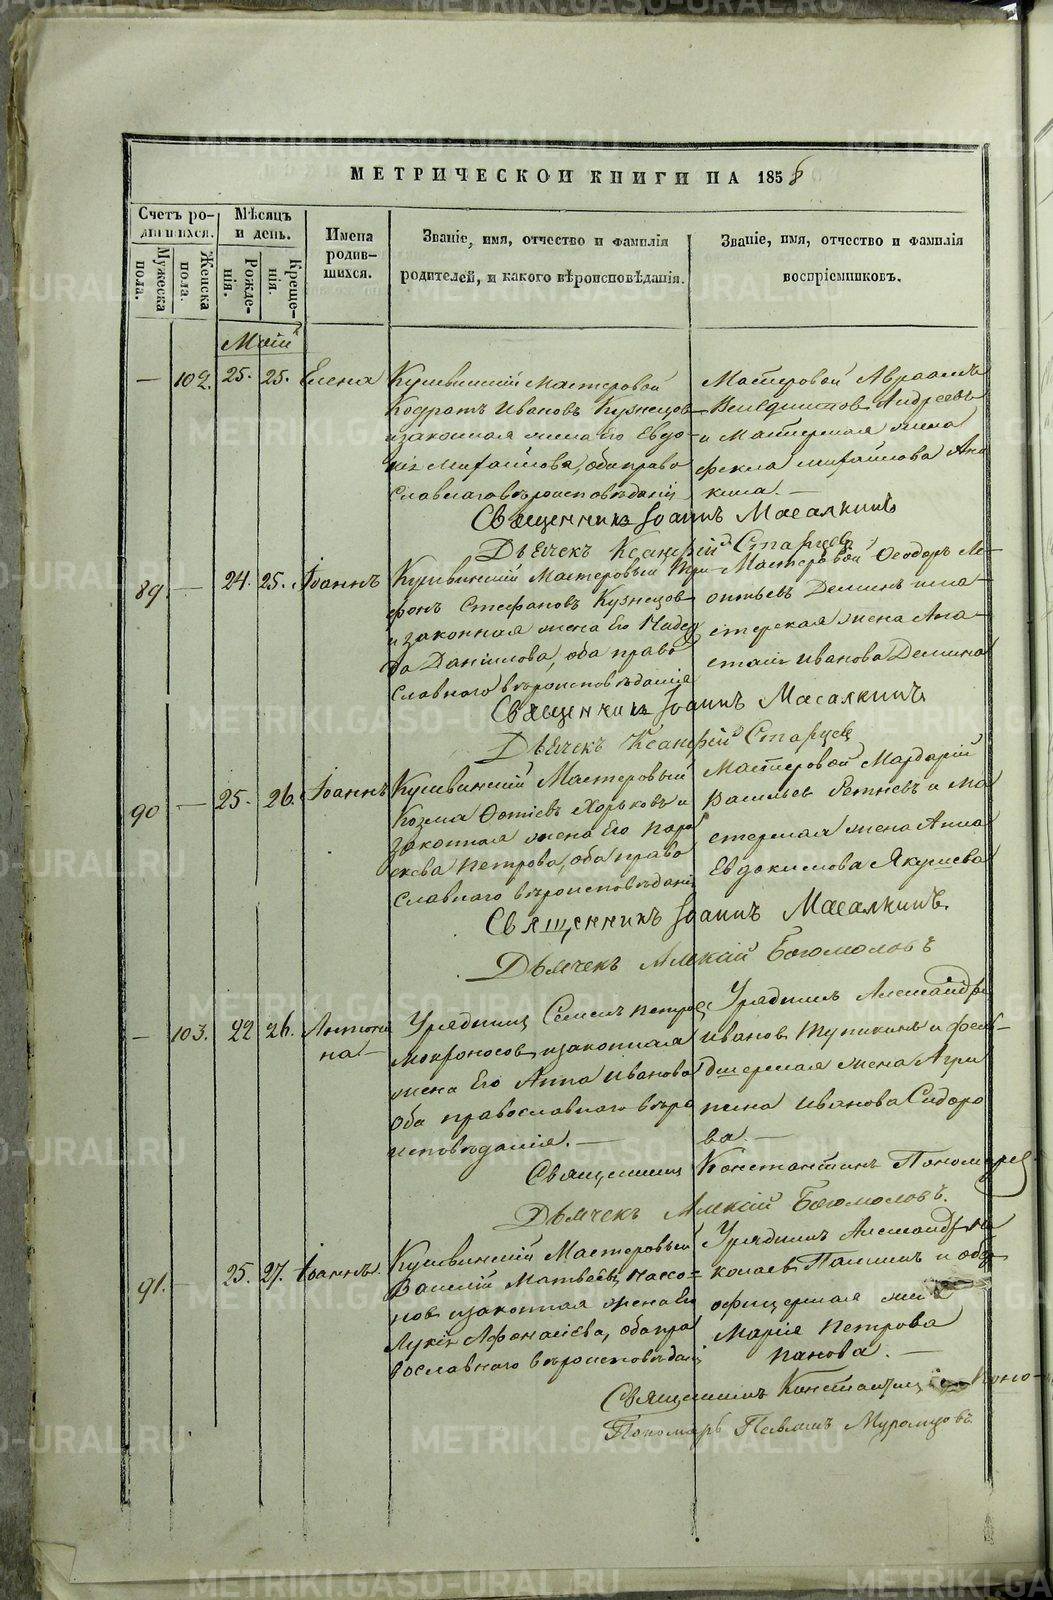 МЕТРИЧЕСКОЙ КНИГИ НА 1858
Счетъ ро-
дившихся.
Мужеска пола.
Женска пола.
Мѣсяцъ
и день.
Рожде-
нія.
Креще-
нія.
Имена
родив-
шихся.
Званіе, имя, отчество и фамилія
родителей, и какого вѣроисповѣданія.
Званіе, имя, отчество и фамилія
воспріемниковъ.
Маій
— 102. 25. 25. Елена
Кушвинскій Мастеровой
Кодратъ Ивановъ Кузнецовъ
и законная жена его Евдо-
кія Михайлова, оба право
славнаго вѣроисповѣданія
Мастеровой Авраамъ
Андреевъ
и Мастерская жена
Фекла Михайлова
кина. —
Священникъ Іоаннъ Масалкинъ
Дьячекъ Ксанфій Старцевъ
89 — 24. 25. Іоаннъ
Кушвинскій Мастеровый Три
фонъ Стефановъ Кузнецовъ
и законная жена его Надеж
да Даніилова, оба право
славнаго вѣроисповѣданія
Мастеровой Ѳеодоръ Ле-
онтьевъ Деминъ и ма-
стерская жена Ана-
стасія Иванова Демина
Священникъ Іоаннъ Масалкинъ
Дьячекъ Ксанфій Старцевъ
90 — 25. 26. Іоаннъ
Кушвинскій Мастеровый
Козма Фотіевъ Хорьковъ и
законная жена его Пара
скева Петрова, оба право
славнаго вѣроисповѣданія
Мастеровой Мардарій
Васильевъ и Ма
стерская жена Анна
Евдокимова Якушева
Священникъ Іоаннъ Масалкинъ.
Дьячекъ Алексій Богомоловъ
— 103. 22 26. Антони
на —
Урядникъ Семенъ Петровъ
Мокроносовъ и законная
жена его Анна Иванова
оба православнаго вѣро
исповѣданія. —
Урядникъ Александръ
Ивановъ Тупикинъ и фель-
дшерская жена Агри
пина Иванова Сидоро
ва. —
Священникъ Константинъ Пономаревъ
Дьячекъ Алексій Богомоловъ.
91. 25. 27. Іоаннъ.
Кушвинскій Мастеровый
Василій Матвеевъ Нако-
новъ и законная жена его
Лукія Афонасіева, оба пра
вославнаго вѣроисповѣданія
Урядникъ Александръ Ни
колаевъ Панинъ и обер
офицерская жена
Марія Петрова
Панова. —
Священникъ Константинъ Поно-
Пономарь Павелъ Муромцовъ
METRIKI.GASO-URAL.RU